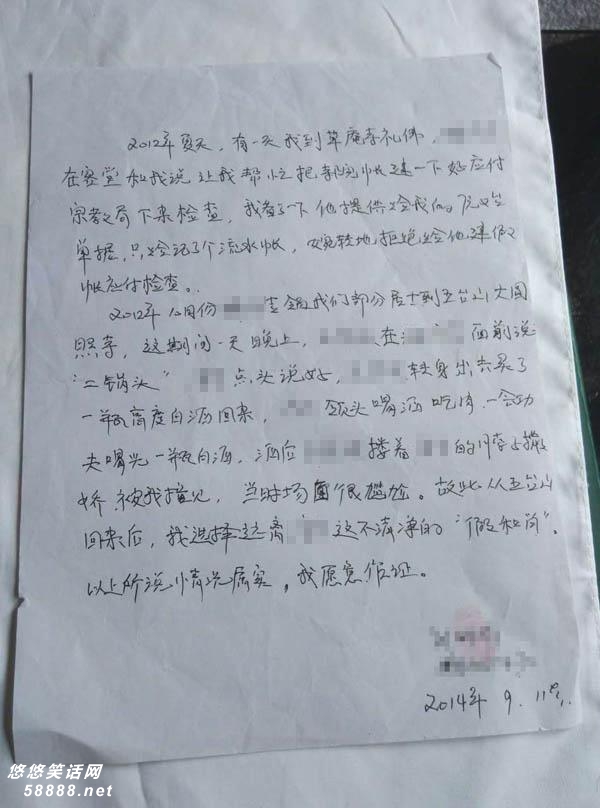 2012年夏天，有一天我到草庵寺礼佛，
在客堂和我说让我帮忙把寺院帐建一下好应付
宗教局下来检查，我看了一下他提供给我的
单据，只给记了个流水帐，婉转地拒绝给他建假
帐应付检查。
2012年 月份 我们部分居士到五台山大圆
照寺，这期间一天晚上， 在 面前说
“二锅头” 点头说好， 转身出去买了
一瓶高度白酒回来， 领头喝酒吃肉，一会功
夫喝光一瓶白酒，酒后 搂着 的脖子撒
娇被我撞见，当时场面很尴尬。故此从五台山
回来后，我选择远离 这不清净的“假和尚”。
以上所说情况属实，我愿意作证。
2014年 9. 11号.
悠悠笑话网
58888.net